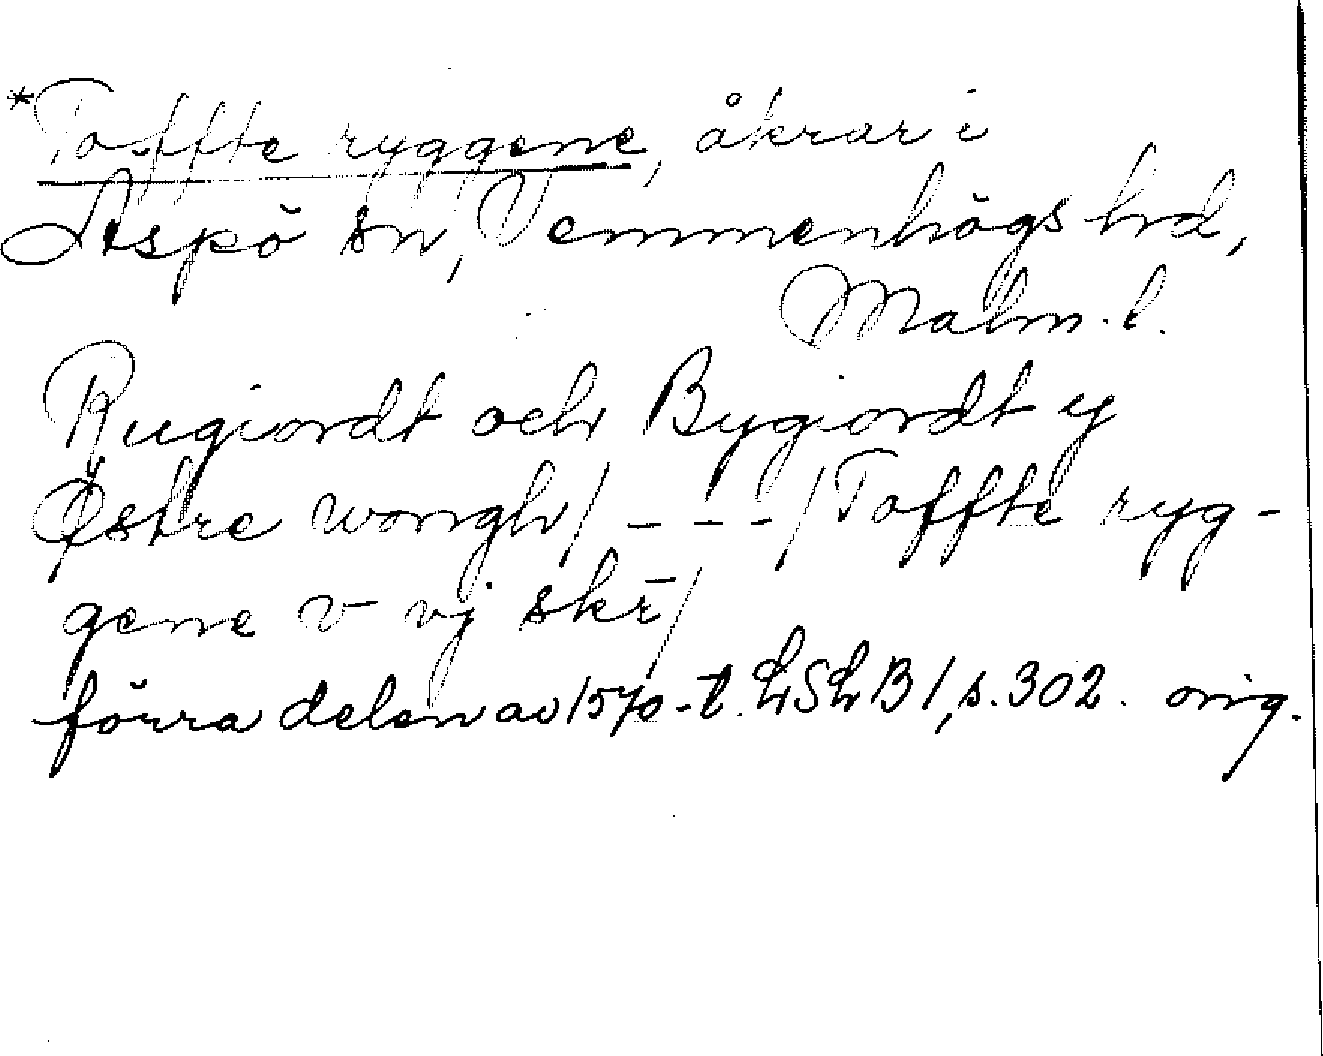 *Toffte ryggene, åkrar i
Äspö sn, Vemmenhögs hd,
Malm. l.
Rugiordt och Bygiordt y
Østre wongh/ - - - / Toffte ryg-
gene v vj skr̄/
förra delen av 1570-t. LSLB 1, s. 302. orig.